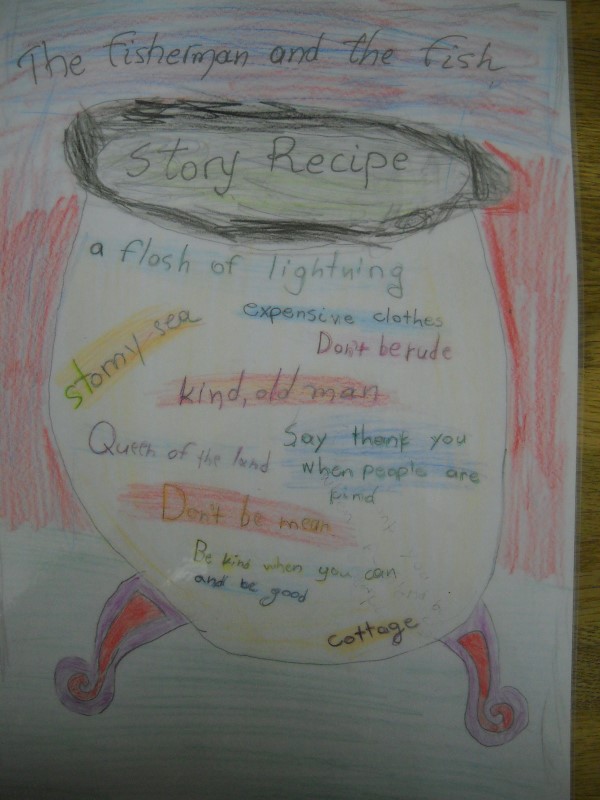 The fisherman and the fish
Story Recipe
a flash of lightning
expensive clothes
stomy sea
Don't be rude
kind, old man
Queen of the land
Say thank you
when people are
kind
Don't be mean
Be kind when you can
and be good
cottage